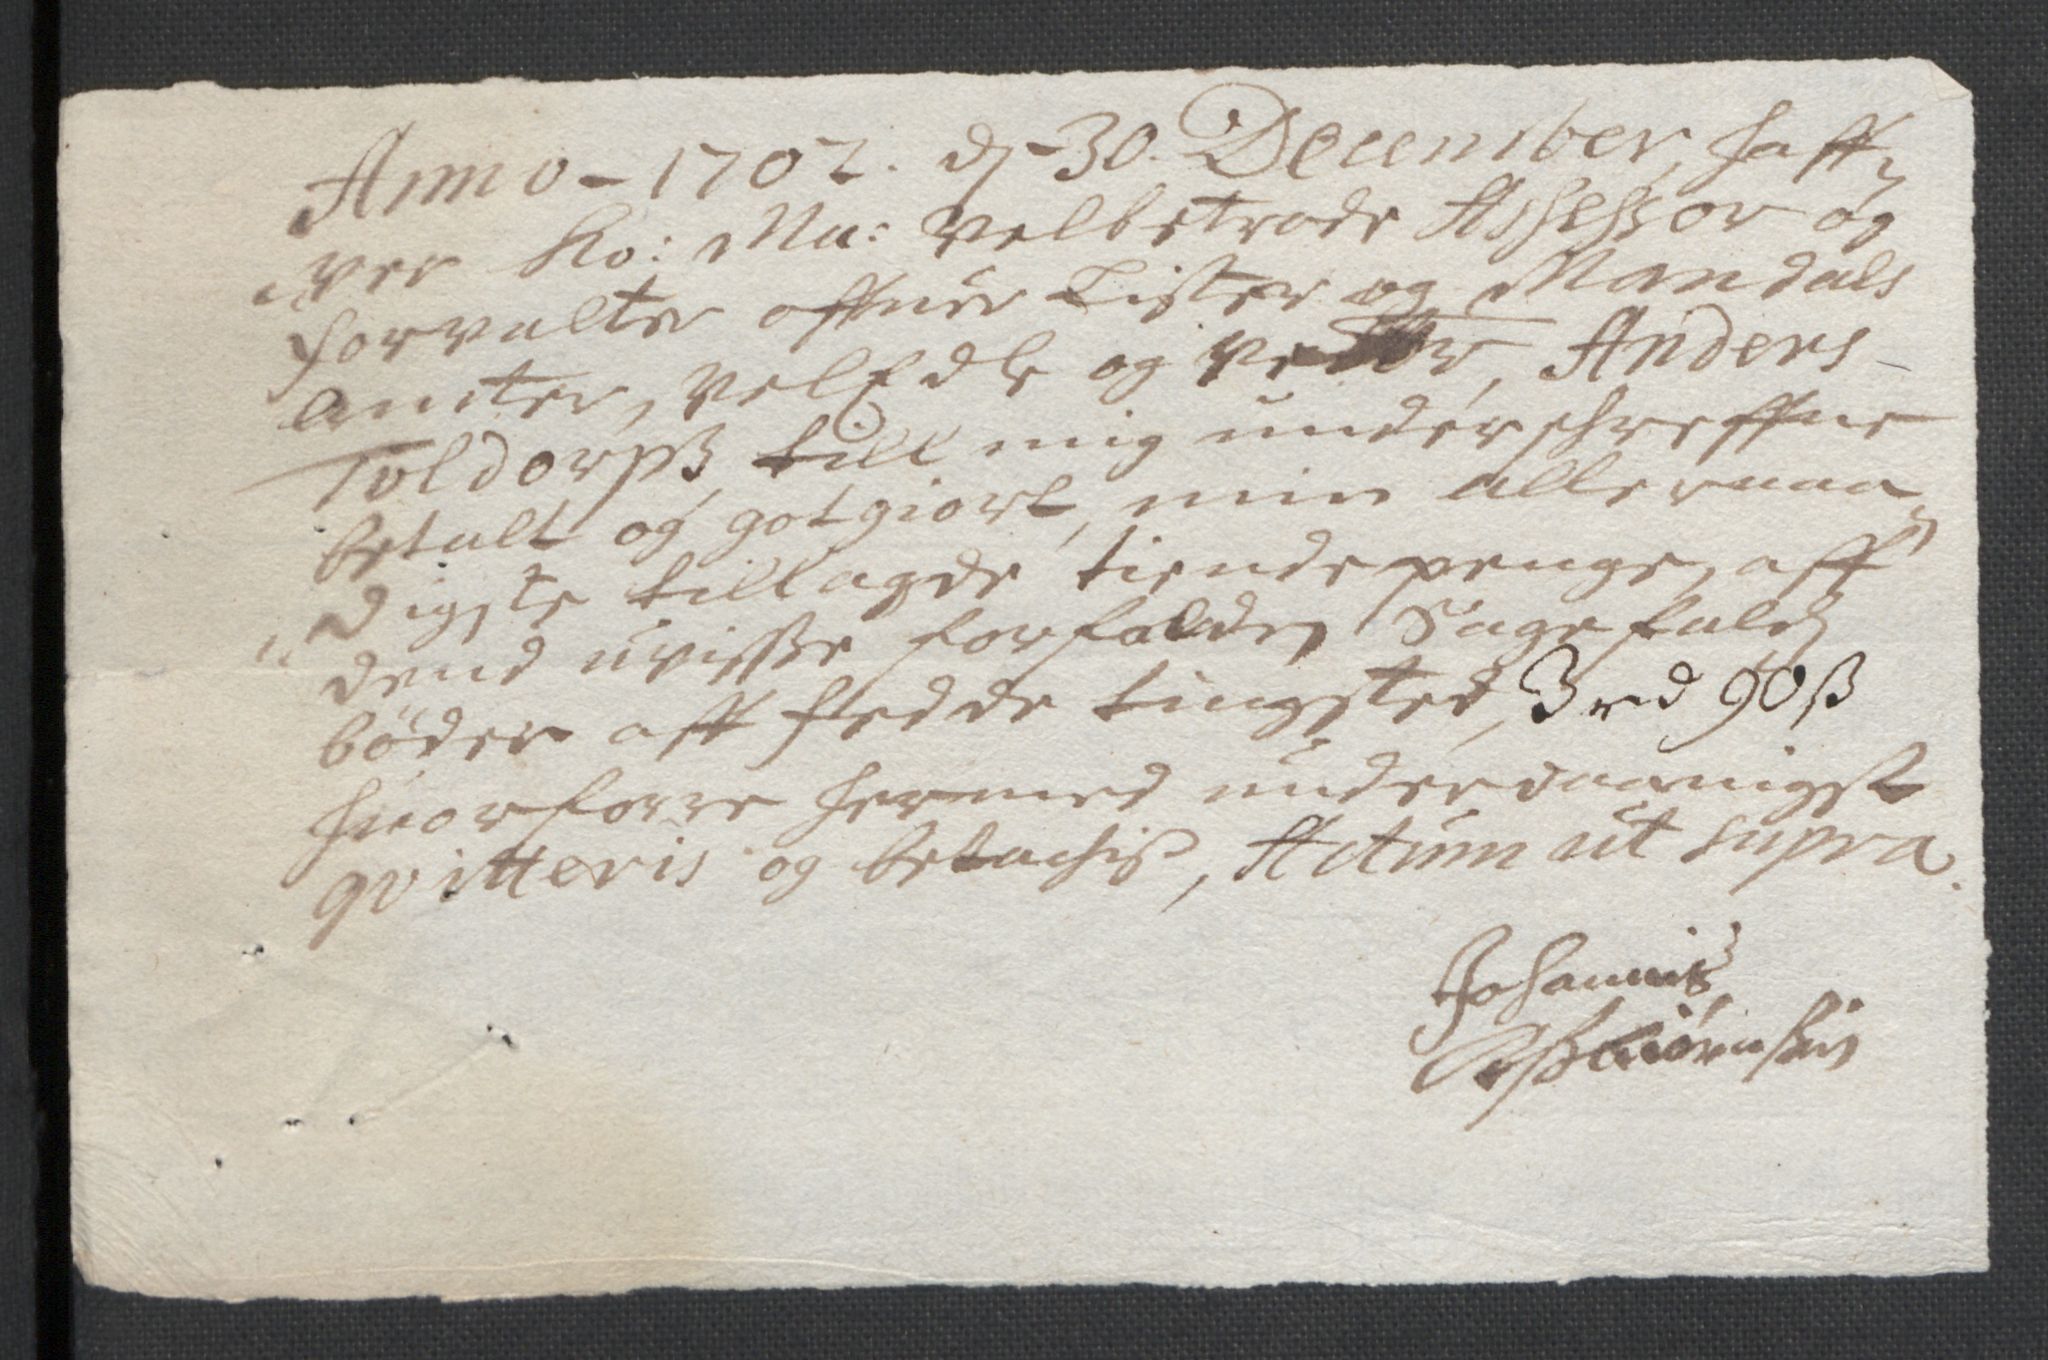 Anno - 1702. d. 30. December, haff-
„ver Ko: Ma: velbetrode Assessor og
forvalter offuer Lister og Mandals
ambter, velEdle og Anders
Toldorph till mig underschreffne
betalt og gotgiort, min allernaa-
„digste tillagde tiendepenge, aff
dend uvisse forfalden Sagefalds
bøder aff fledde tingsted, 3 rd 90 ß
huorforre hermed underdaanigst
qvitteris og betachis, Actum ut supra.
Johannis